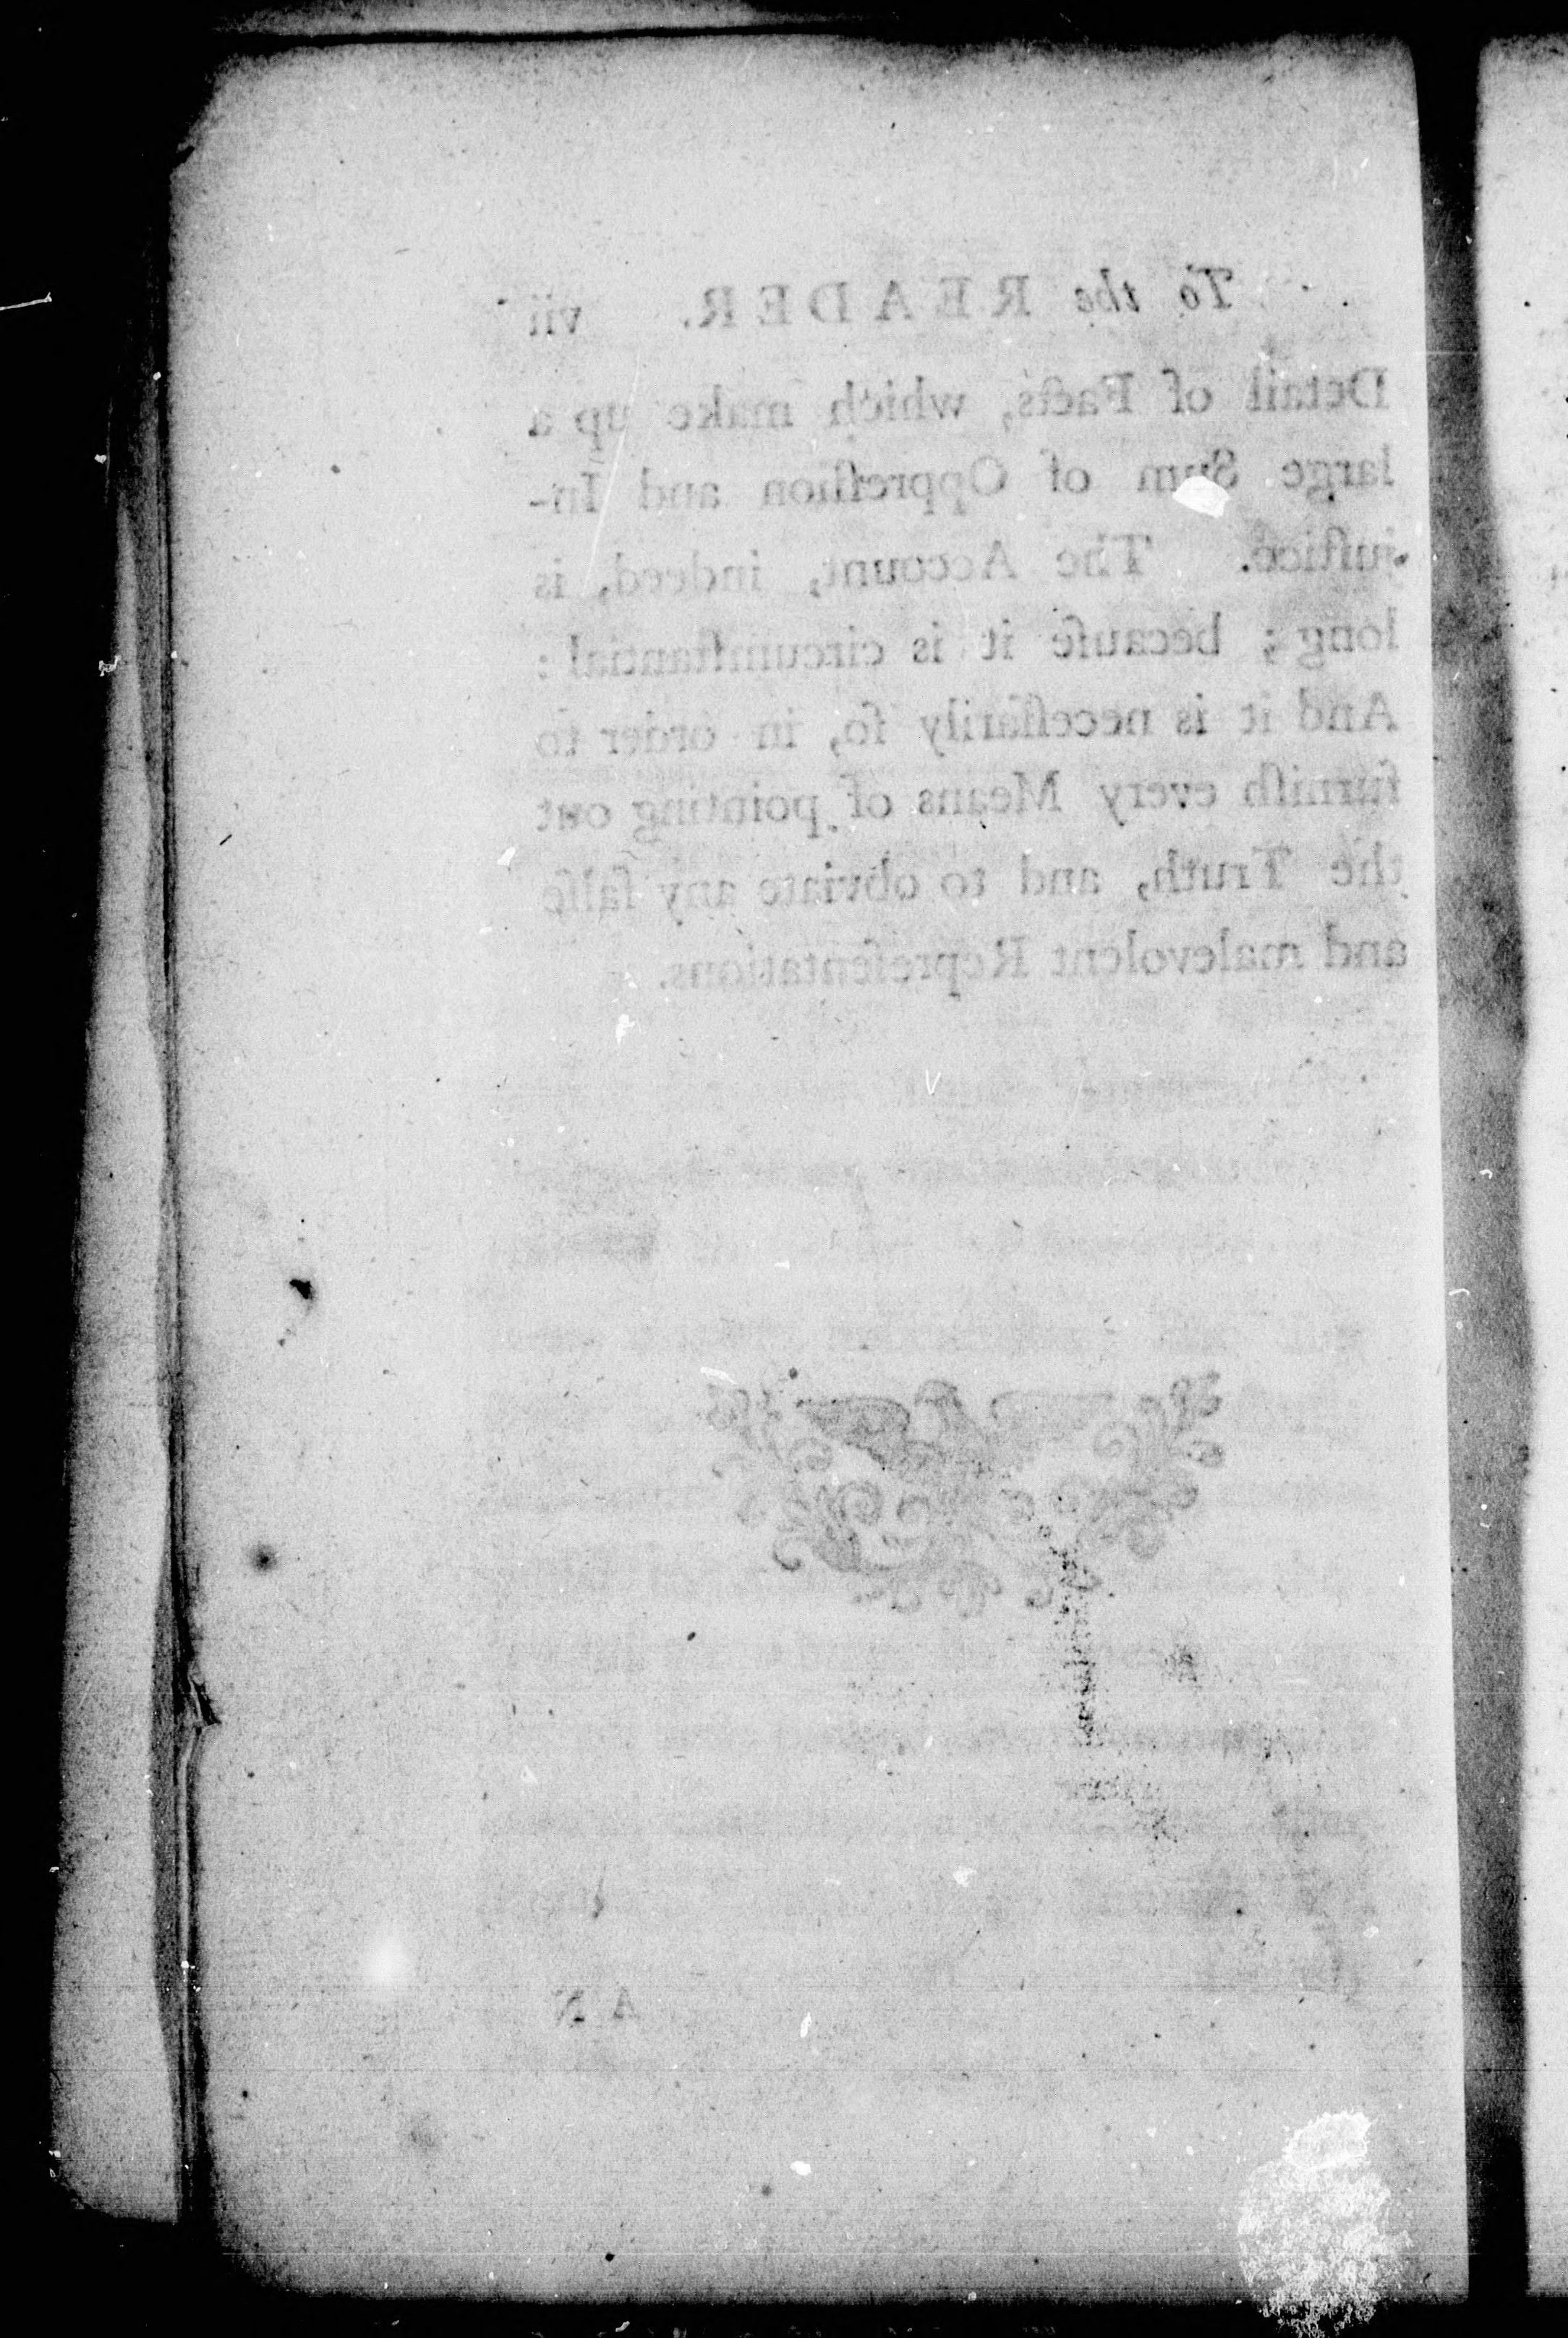 To the READER. vii
Detail of Facts, which make up a
large Sum of Oppreſſion and In-
juſtice. The Account, indeed, is
long; becauſe it is circumſtantial:
And it is neceſſarily ſo, in order to
furniſh every Means of pointing out
the Truth, and to obviate any falſe
and malevolent Repreſentations.
AN